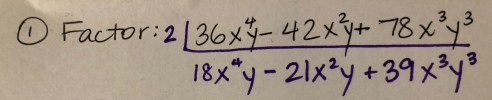 ① Factor: 2 | 36x⁴y - 42x²y + 78x³y³
18x⁴y - 21x²y + 39x³y³